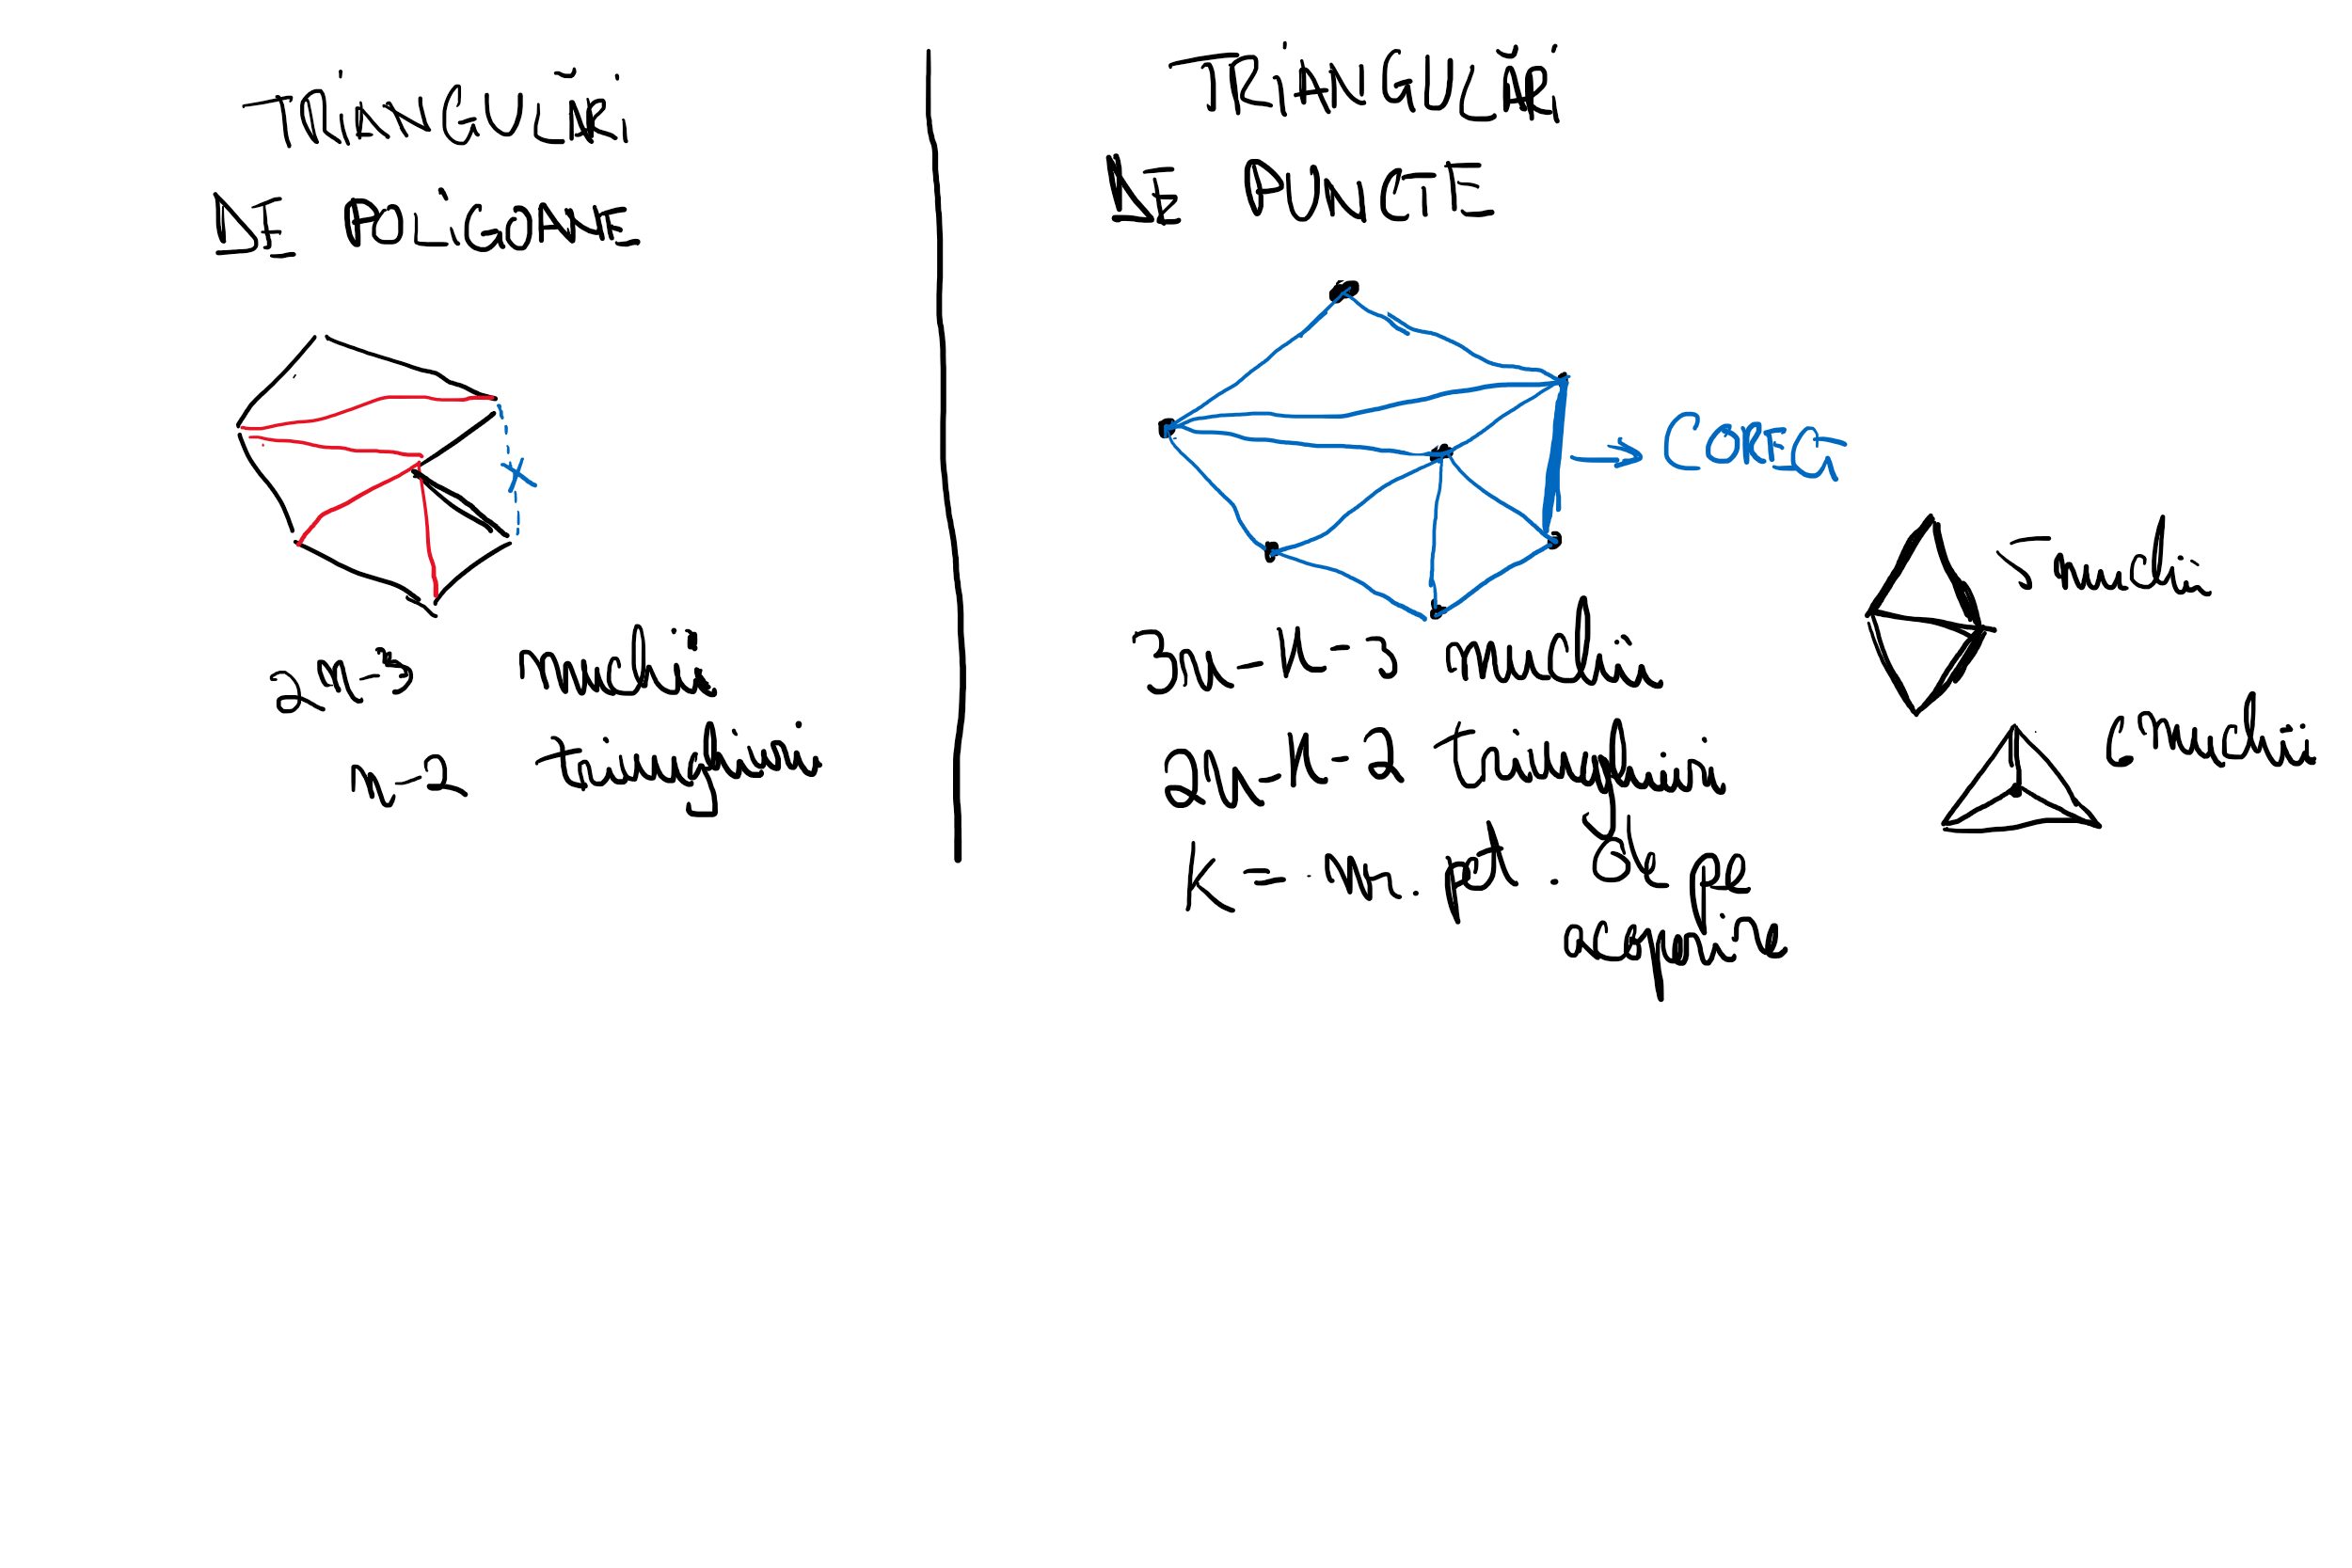 TRIANGULĂRI
DE POLIGOANE
2n-3 muchii
n-2 triunghiuri
TRIANGULĂRI
DE PUNCTE
→ CORECT
3n-k-3 muchii
2n-k-2 triunghiuri
k = nr. pct. de pe
acoperire
5 muchii
6 muchii